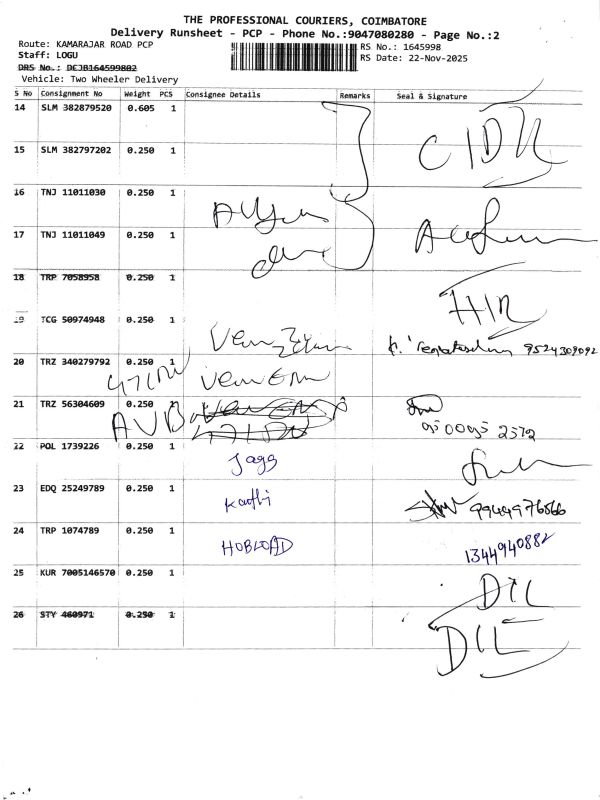 THE PROFESSIONAL COURIERS, COIMBATORE
Delivery Runsheet - PCP - Phone No.:9047080280 - Page No.:2
Route: KAMARAJAR ROAD PCP
RS No.: 1645998
Staff: LOGU
RS Date: 22-Nov-2025
DRS No.: DCJB164599802
Vehicle: Two Wheeler Delivery
S No Consignment No Weight PCS Consignee Details Remarks Seal & Signature
14 SLM 382879520 0.605 1
15 SLM 382797202 0.250 1
16 TNJ 11011030 0.250 1
17 TNJ 11011049 0.250 1
18 TRP 7058958 0.250 1
19 TCG 50974948 0.250 1
9524309092
20 TRZ 340279792 0.250 1
21 TRZ 56304609 0.250 1
AVB
95 0095 2372
22 POL 1739226 0.250 1 Jagg
23 EDQ 25249789 0.250 1
9944976566
24 TRP 1074789 0.250 1 HOBLOAD 1344940882
25 KUR 7005146570 0.250 1
26 STY 460971 0.250 1